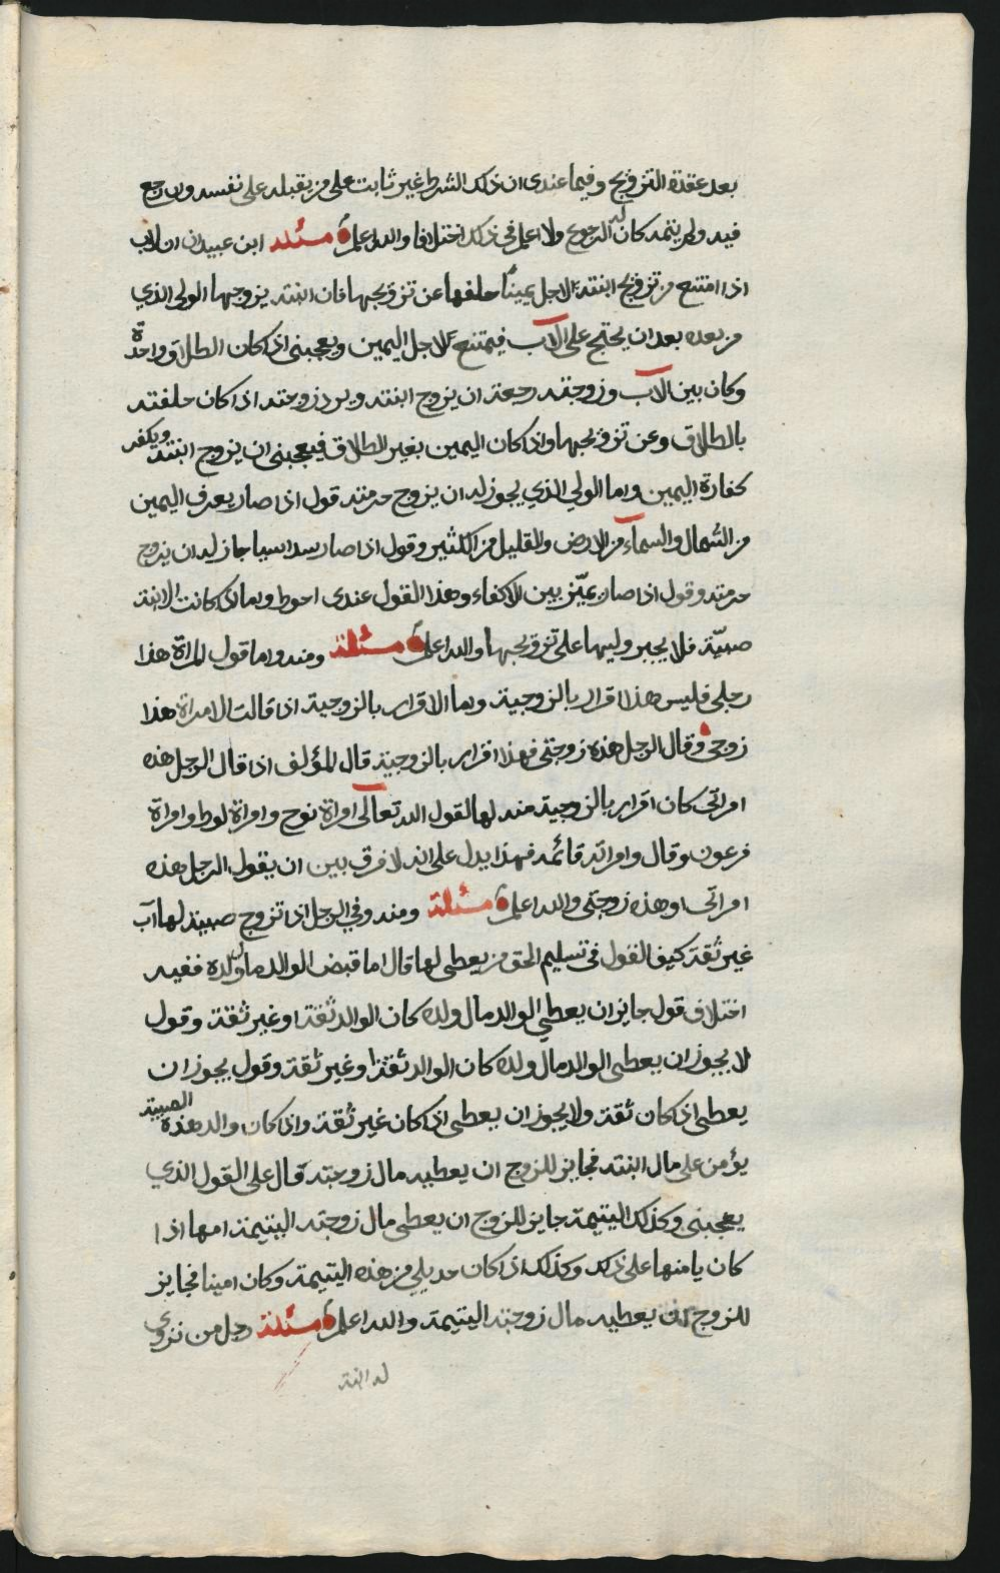 بعد عقدة التزويج وفيما عندي ان ذلك الشرط غير ثابت على من يقبله على نفسه وان رجع
فيه ولم يتمه كان له الرجوع ولا اعلم في ذلك اختلافا والله اعلم مسئلة ابن عبيدان ان الاب
اذا امتنع من تزويج ابنته لاجل يمينٍ حلفها عن تزويجها فان ابنته يزوجها الولي الذي
من بعده بعد ان يحتج على الاب فيمتنع لاجل اليمين ويعجبني اذا كان الطلاق واحدة
وكان بين الاب وزوجته رجعة ان يزوج ابنته ويرد زوجته اذا كان حلفته
بالطلاق وعن تزويجها واذا كان اليمين بغير الطلاق فيعجبني ان يزوج ابنته ويكفر
كفارة اليمين واما الولي الذي يجوز له ان يزوج حرمته قول اذا صار يعرف اليمين
من الشمال والسماء من الارض والقليل من الكثير وقول اذا صار سداسيا جاز له ان يزوج
حرمته وقول اذا صار يميّز بين الاكفاء وهذا القول عندي احوط واما اذا كانت الابنة
صبيّة فلا يجبر وليها على تزويجها والله اعلم مسئلة ومنه واما قول المراة هذا
رجلي فليس هذا اقرار بالزوجية واما الاقرار بالزوجية اذا قالت الامراة هذا
زوجي وقال الرجل هذه زوجتي فهذا اقرار بالزوجية قال المؤلف اذا قال الرجل هذه
امراتي كان اقرار بالزوجية منه لها لقول الله تعالى امراة نوح وامراة لوط وامراة
فرعون وقال وامراته قائمه فهذا يدل على انه لا فرق بين ان يقول الرجل هذه
امراتي او هذه زوجتي والله اعلم مسئلة ومنه وفي الرجل اذا تزوج صبية لها اب
غير ثقة كيف القول في تسليم الحق من يعطى لها قال اما قبض الوالد مال ولده ففيه
اختلاف قول جايز ان يعطي الوالد مال ولده كان الوالد ثقة او غير ثقة وقول
لا يجوز ان يعطى الوالد مال ولده كان الوالد ثقة او غير ثقة وقول يجوز ان
يعطى اذا كان ثقة ولا يجوز ان يعطى اذا كان غير ثقة واذا كان والد هذه الصبية
يؤمن على مال ابنته فجايز للزوج ان يعطيه مال زوجته قال على القول الذي
يعجبني وكذلك اليتيمة جايز للزوج ان يعطى مال زوجته اليتيمة امها اذا
كان يامنها على ذلك وكذلك اذا كان احد يلي من هذه اليتيمة وكان امينا فجايز
للزوج ان يعطيه مال زوجته اليتيمة والله اعلم مسئلة رجل من نزوى
له ابنة